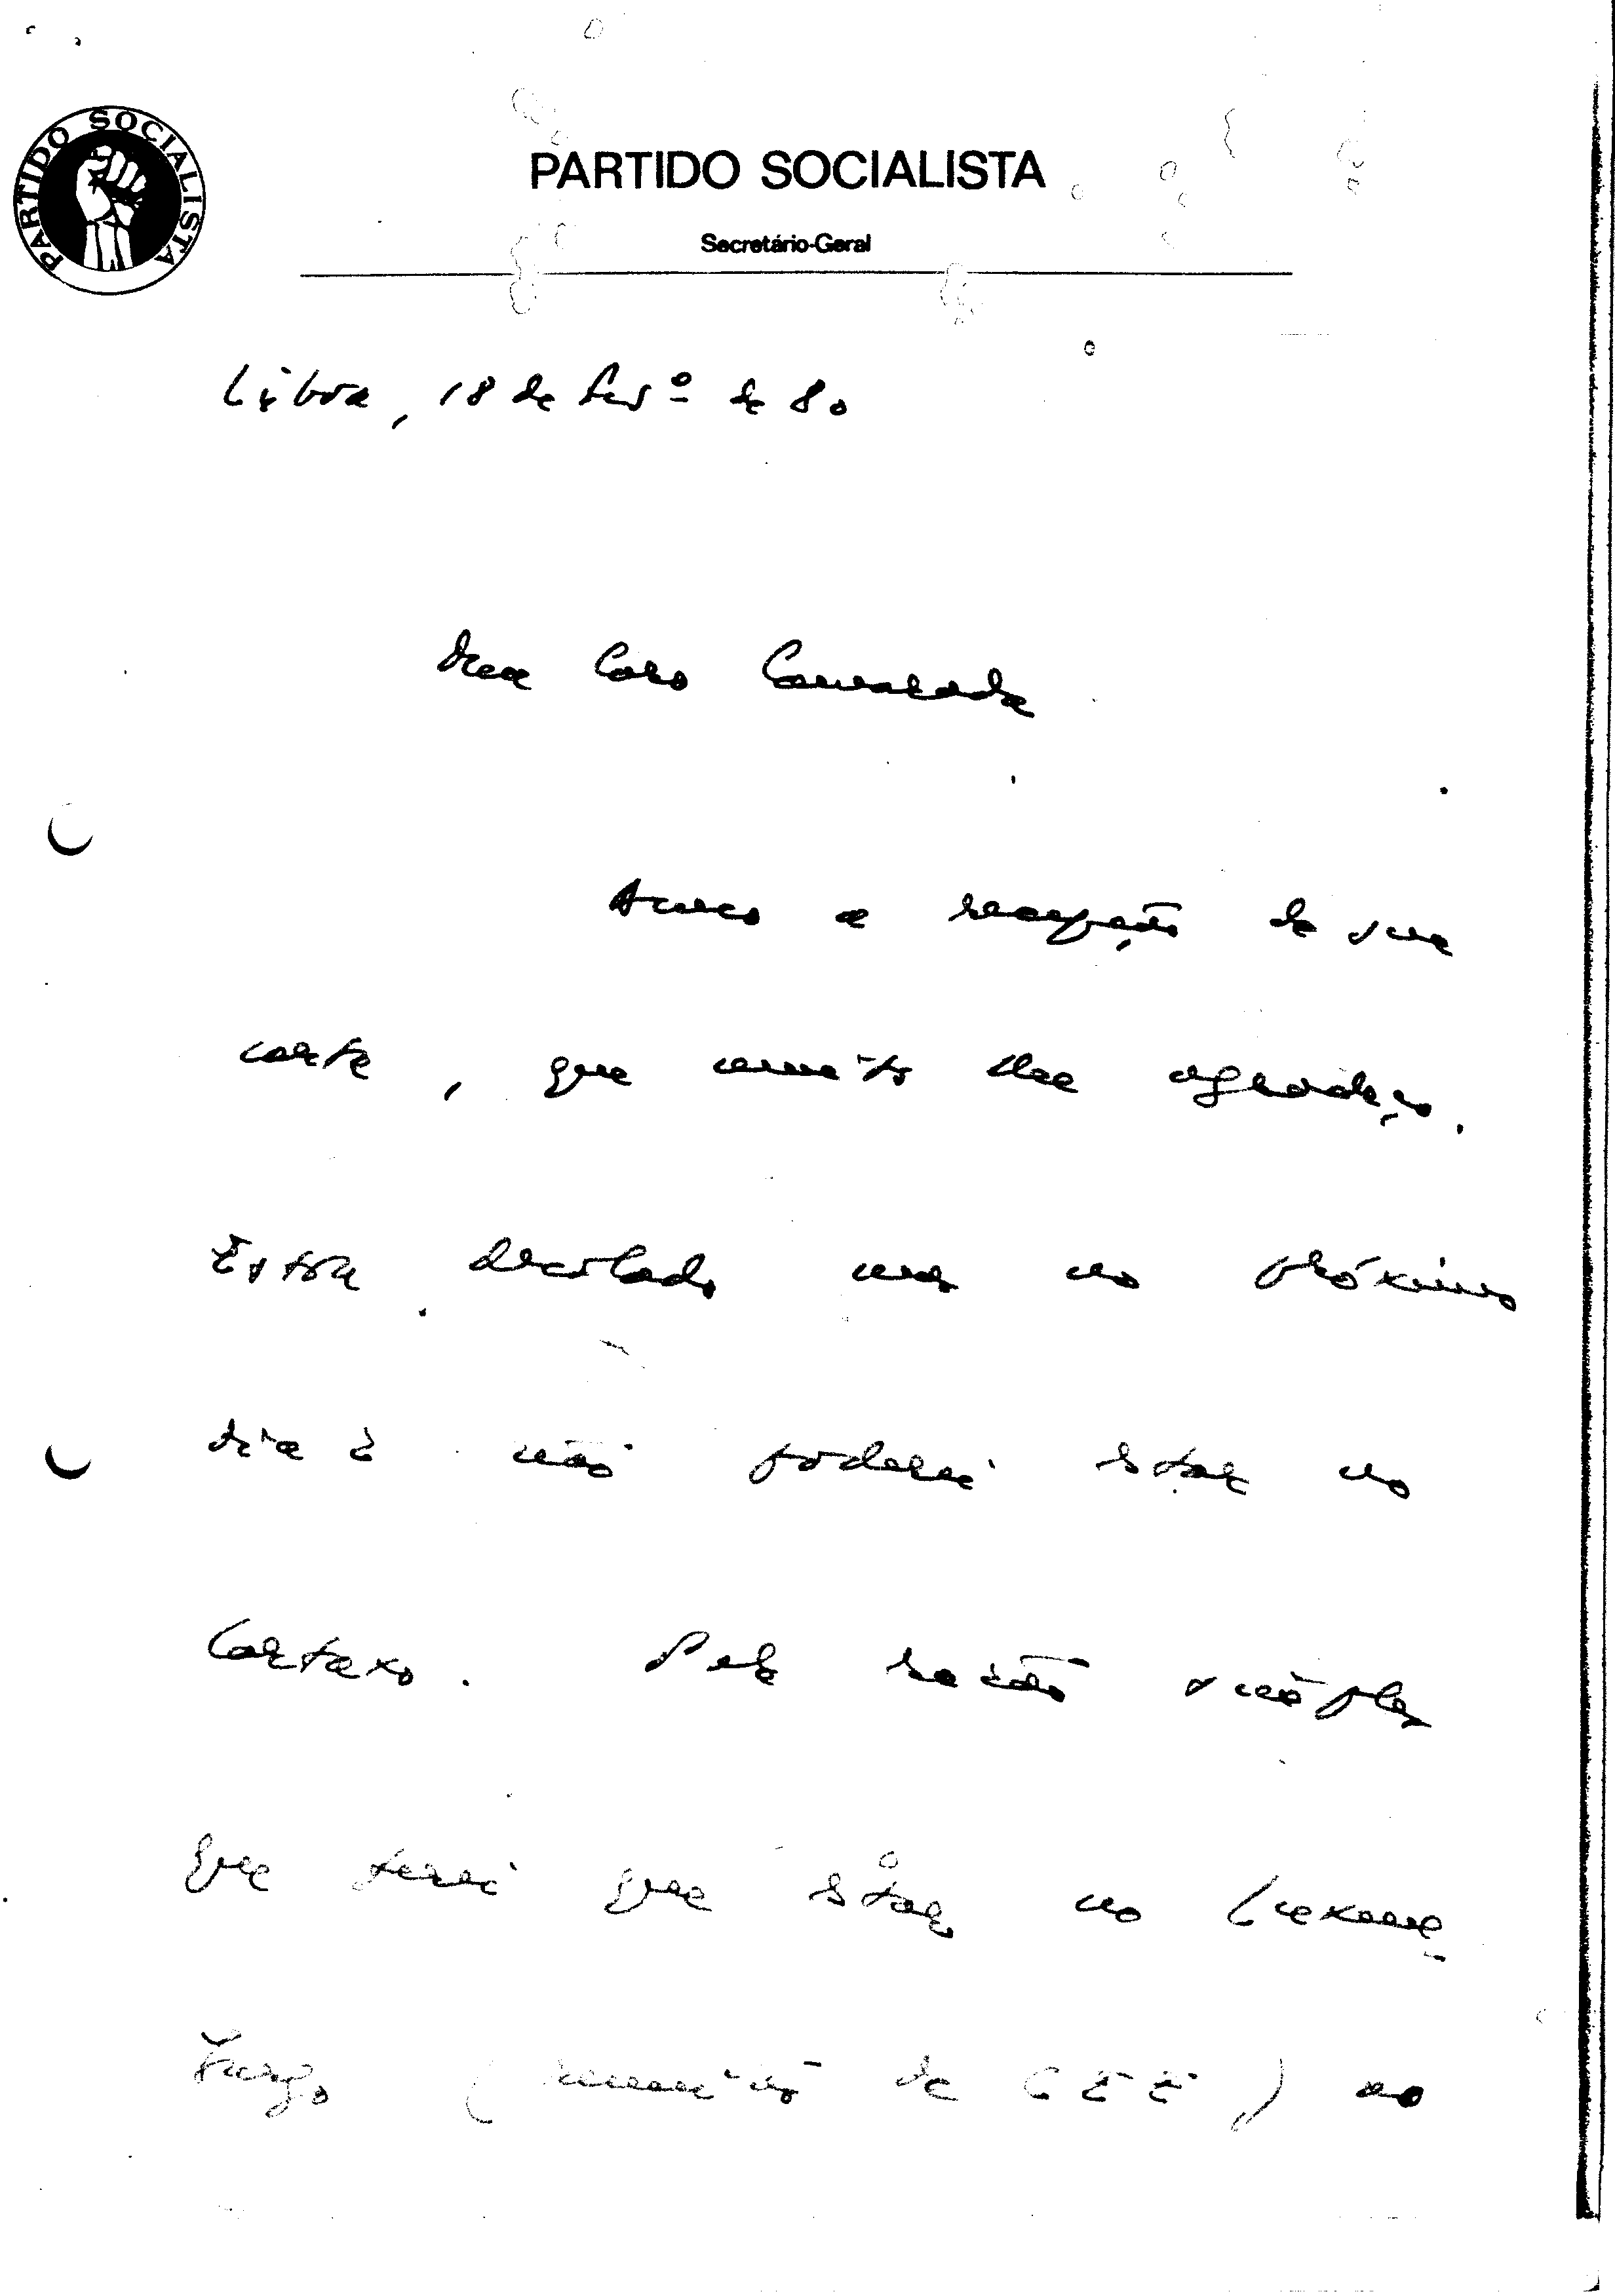 PARTIDO SOCIALISTA
PARTIDO SOCIALISTA
Secretário-Geral
Lisboa, 18 de Fevº de 80
Meu Caro Camarada
Acuso a recepção da sua
carta, que muito lhe agradeço.
Estou desolado mas no próximo
dia 2 não poderei estar no
Cartaxo. Pela razão simples
que terei que estar no Luxem-
burgo (reunião da CEE) ao